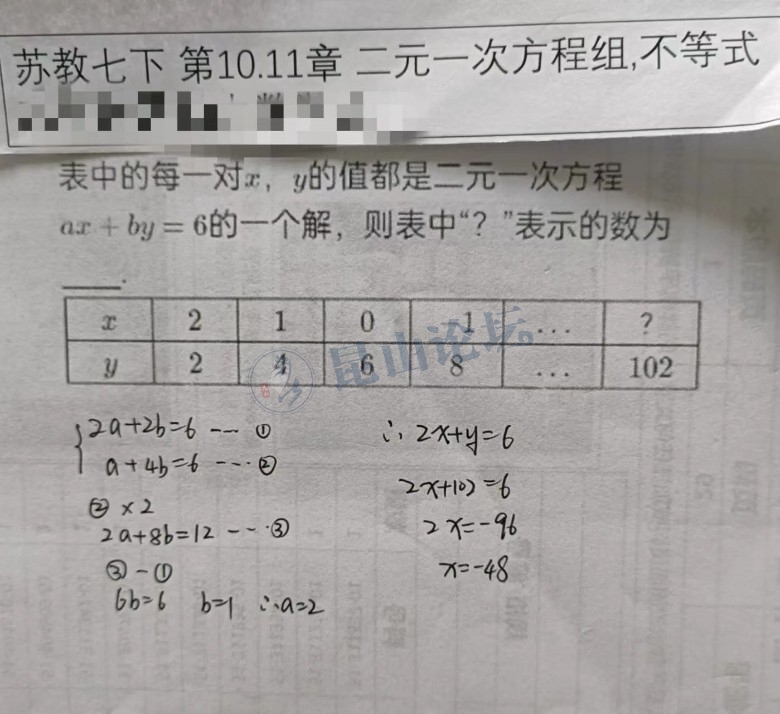 苏教七下 第10.11章 二元一次方程组,不等式
表中的每一对x，y的值都是二元一次方程
ax + by = 6的一个解，则表中“？”表示的数为
____.
x 2 1 0 1 ... ?
y 2 4 6 8 ... 102
昆山论坛
2a+2b=6 --- ①
a+4b=6 --- ②
②×2
2a+8b=12 --- ③
③-①
6b=6 b=1 ∴a=2
∴ 2x+y=6
2x+102=6
2x=-96
x=-48